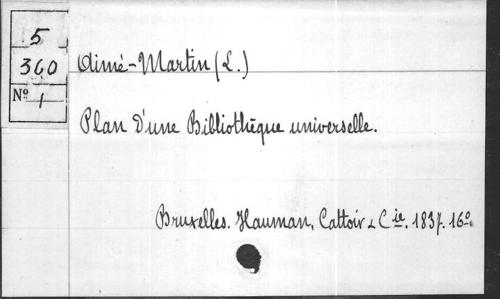 5
360
Nº 1
Aimé-Martin (L.)
Plan D'une Bibliothèque universelle.
Bruxelles. Hauman, Cattoir & Cie. 1837. 16º